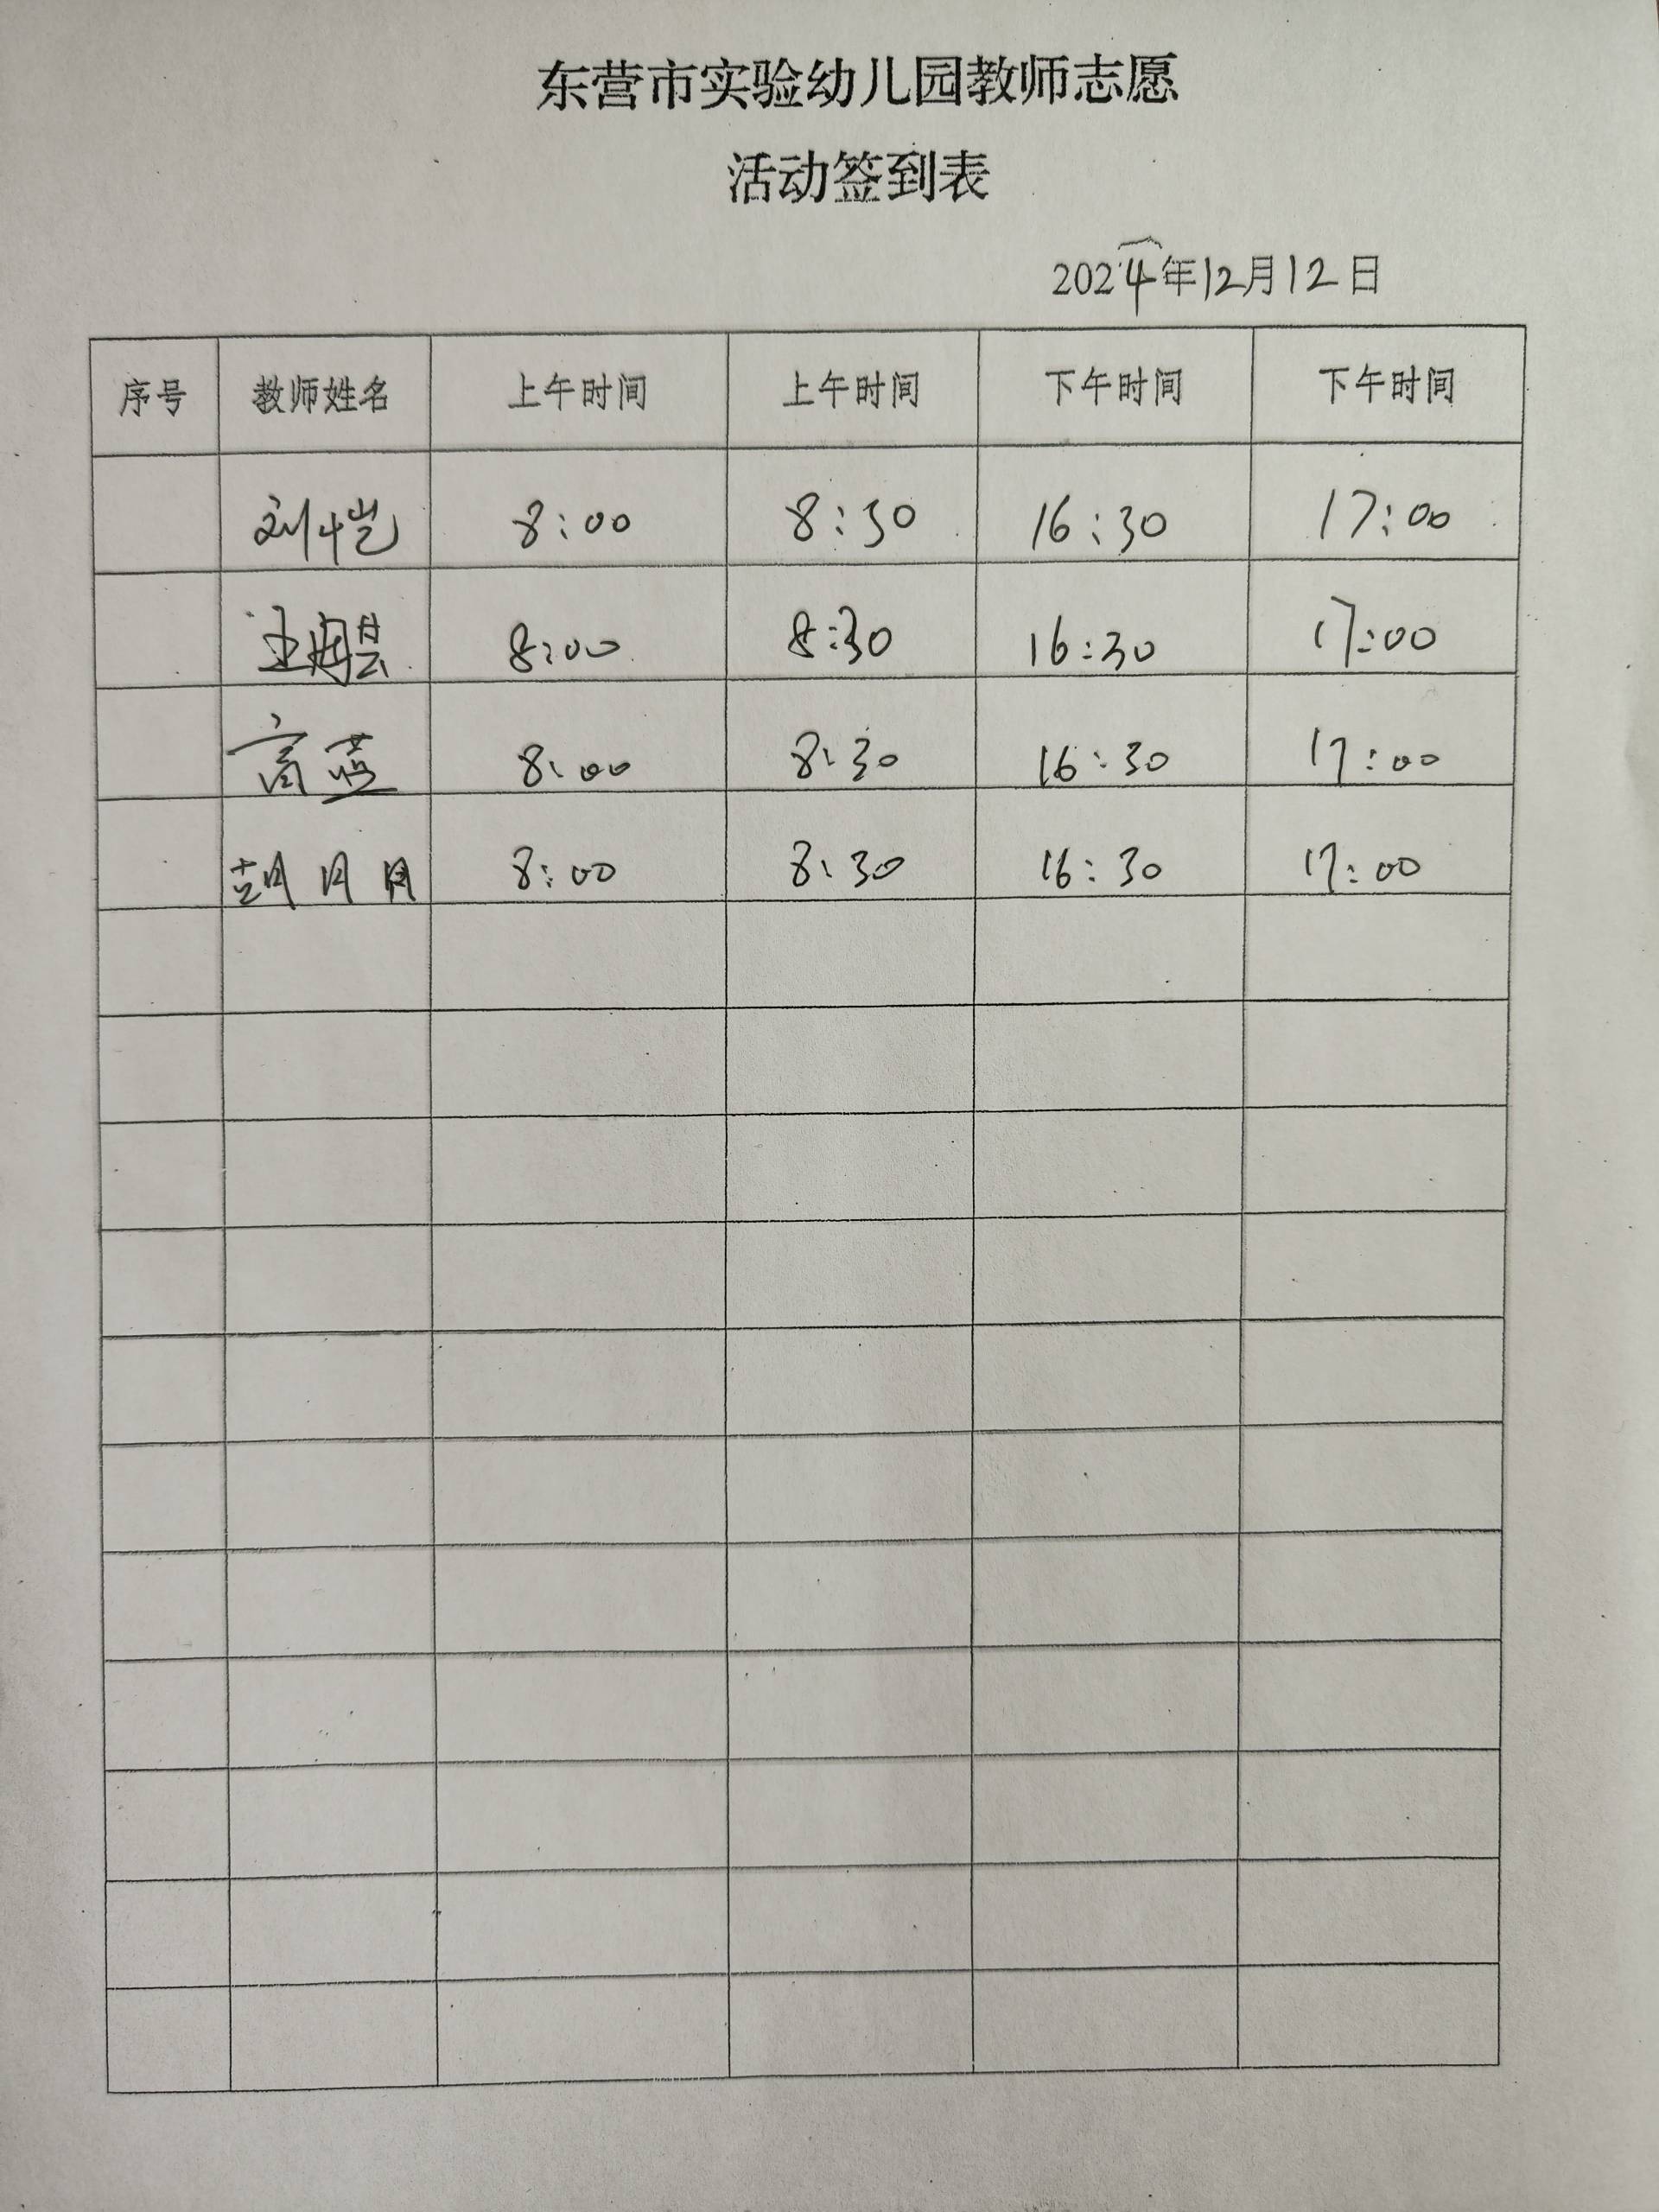 东营市实验幼儿园教师志愿
活动签到表
2024年12月12日
序号 教师姓名 上午时间 上午时间 下午时间 下午时间
刘恺 8:00 8:30 16:30 17:00
王 8:00 8:30 16:30 17:00
高蓝 8:00 8:30 16:30 17:00
胡月月 8:00 8:30 16:30 17:00